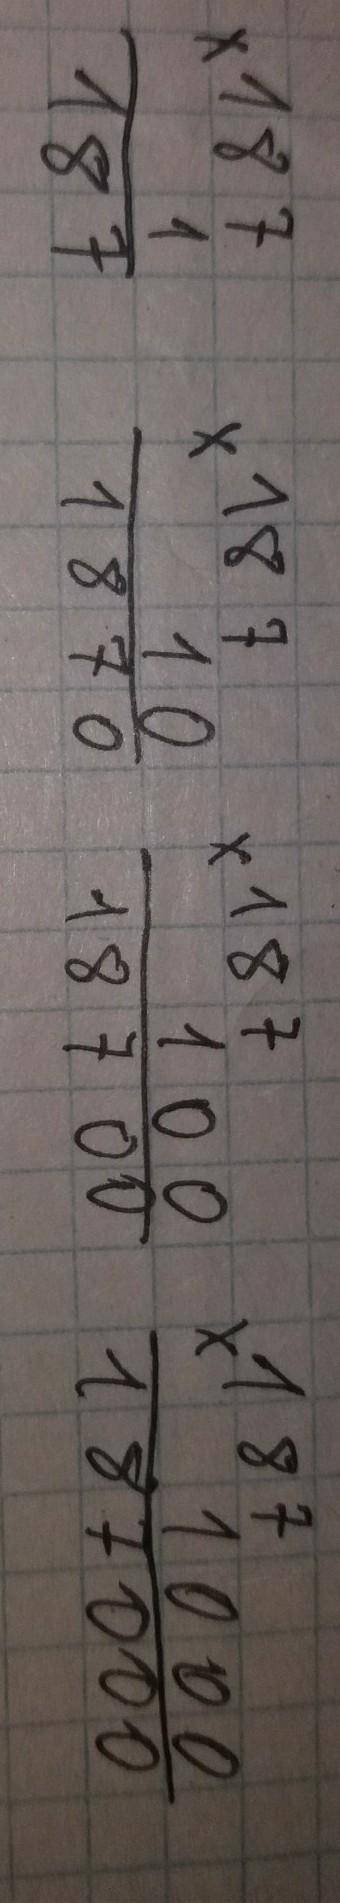 ×187
1
187
×187
10
1870
×187
100
18700
×187
1000
187000